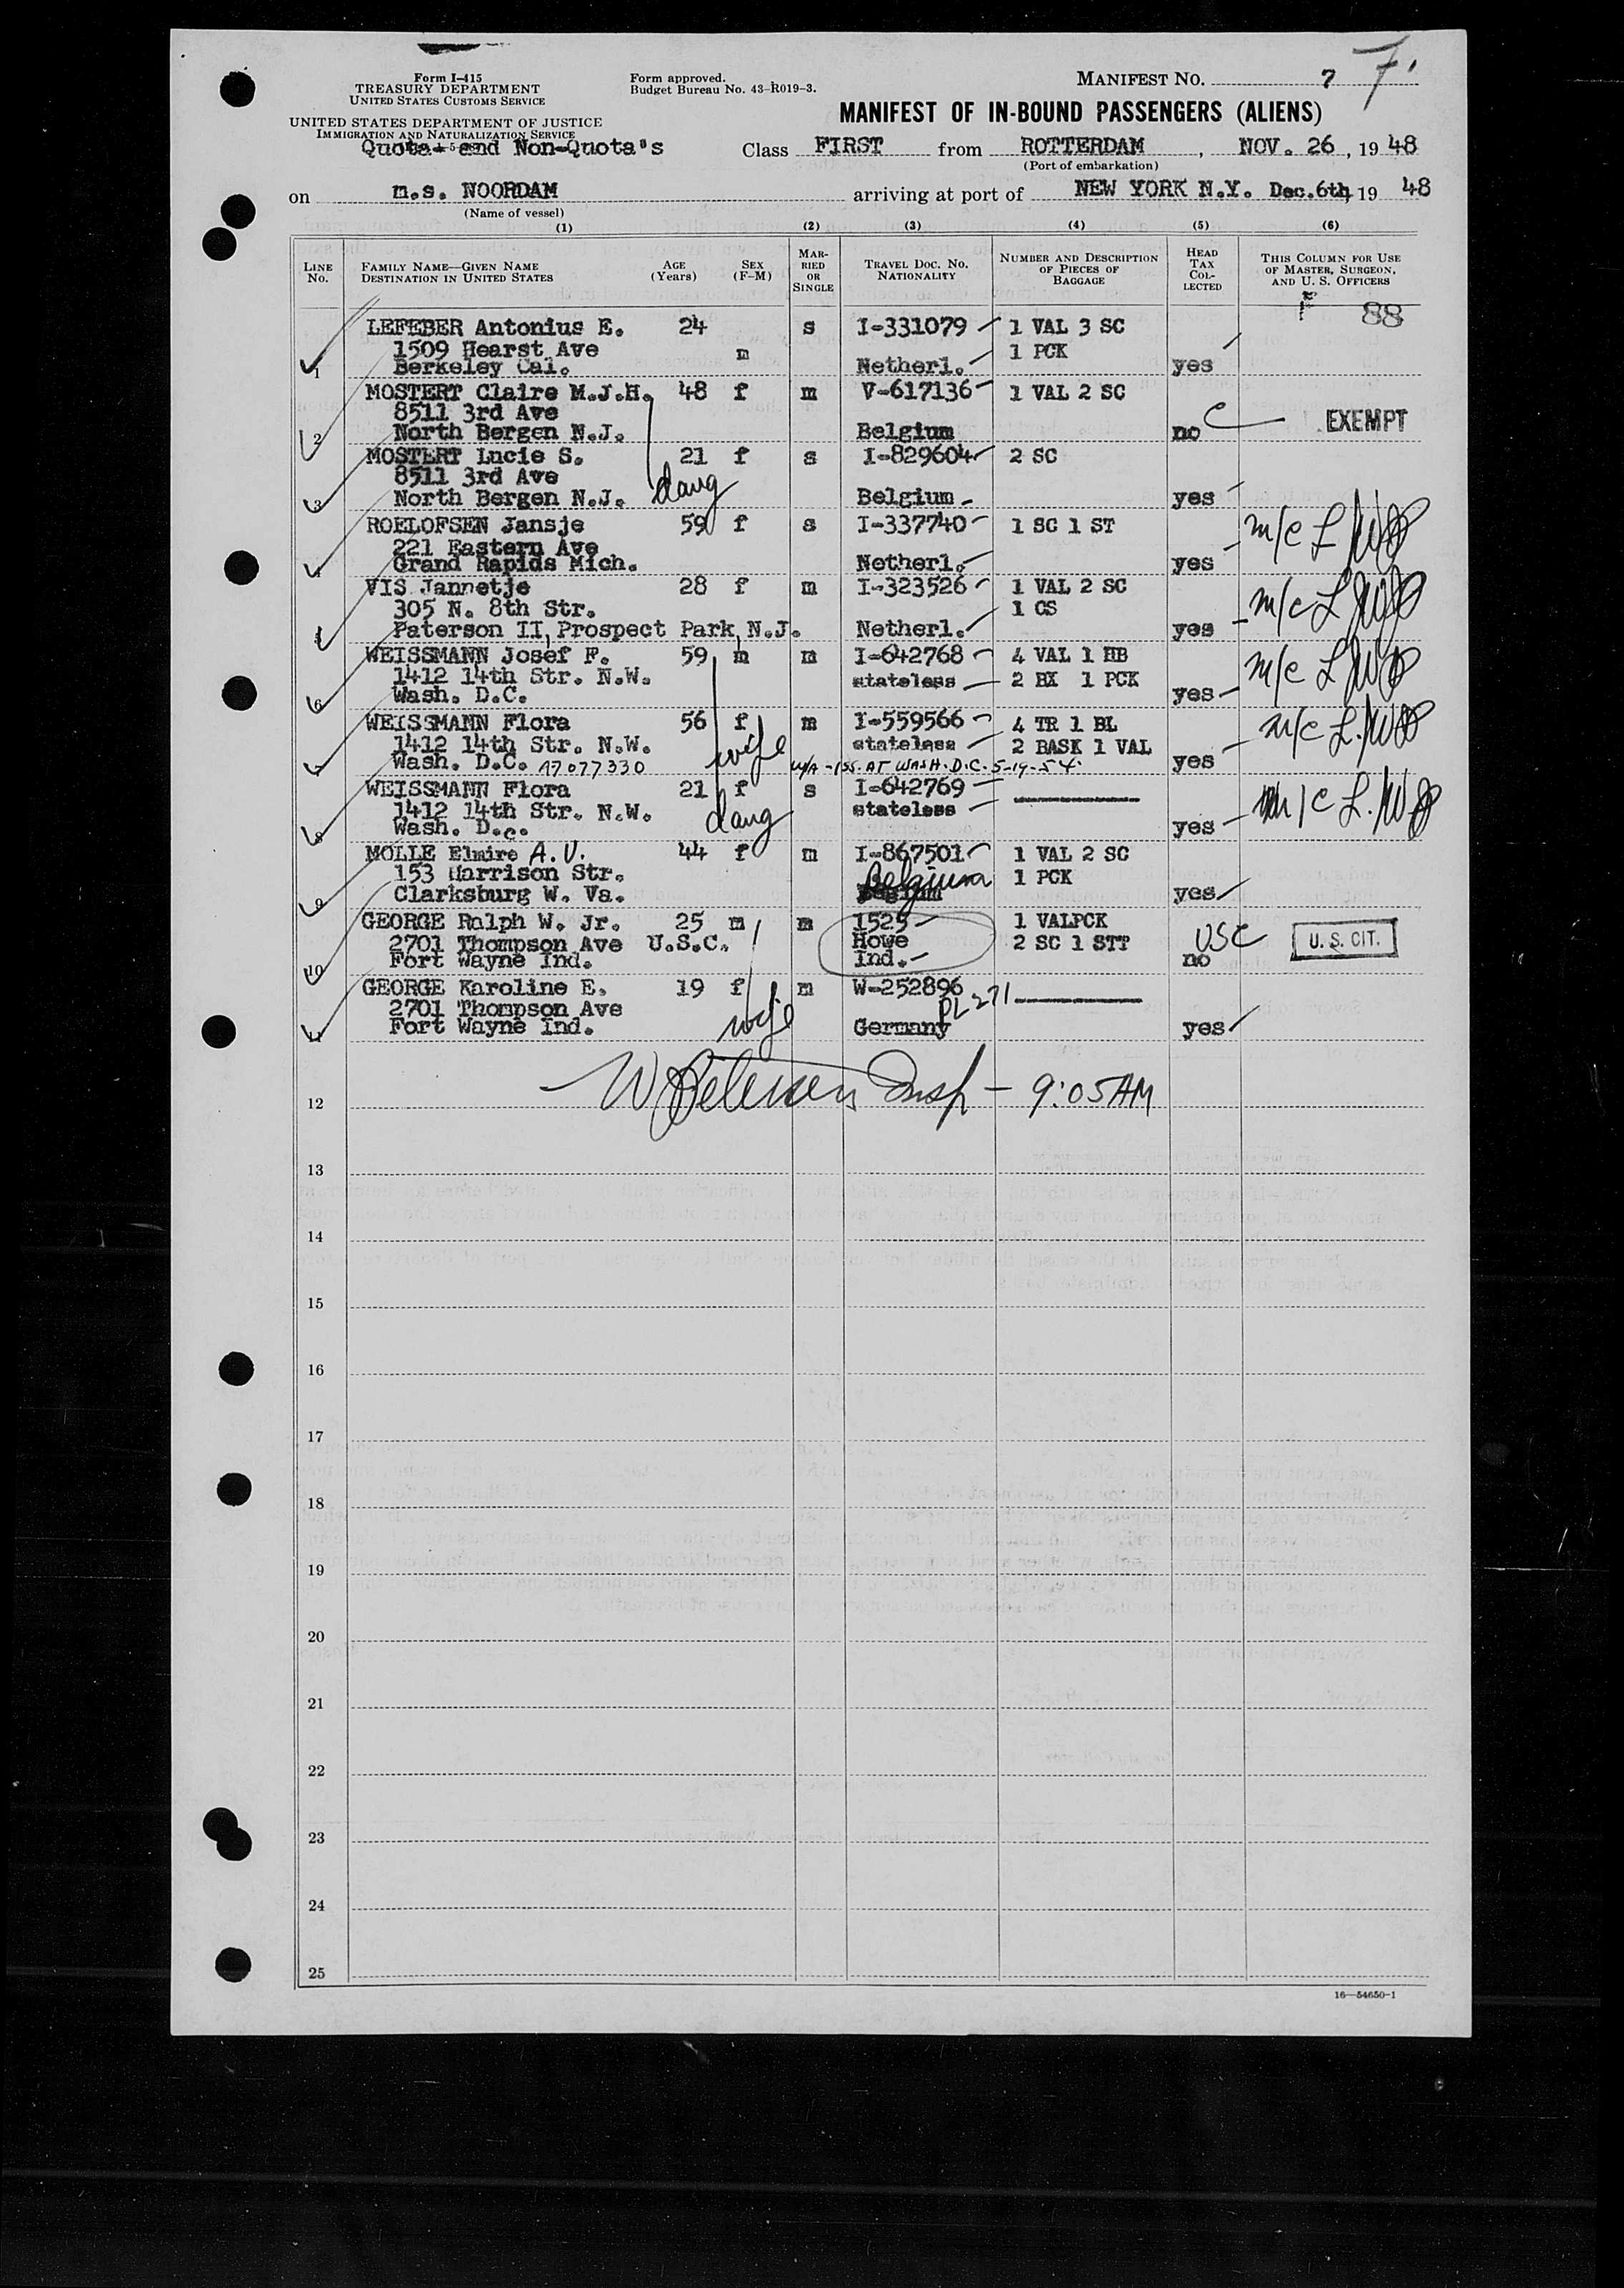 Form I-415
TREASURY DEPARTMENT
UNITED STATES CUSTOMS SERVICE
UNITED STATES DEPARTMENT OF JUSTICE
IMMIGRATION AND NATURALIZATION SERVICE
Form approved.
Budget Bureau No. 43-R019-3.
MANIFEST NO. 7 7
MANIFEST OF IN-BOUND PASSENGERS (ALIENS)
Quota and Non-Quota's
Class FIRST from ROTTERDAM, NOV. 26, 19 48
(Port of embarkation)
on m.s. NOORDAM arriving at port of NEW YORK N.Y. Dec.6th, 19 48
(Name of vessel)
(1) (2) (3) (4) (5) (6)
LINE NO. FAMILY NAME—GIVEN NAME DESTINATION IN UNITED STATES AGE (Years) SEX (F-M) MARRIED OR SINGLE TRAVEL DOC. NO. NATIONALITY NUMBER AND DESCRIPTION OF PIECES OF BAGGAGE HEAD TAX COLLECTED THIS COLUMN FOR USE OF MASTER, SURGEON, AND U. S. OFFICERS
F 88
LEFEBER Antonius E. 24 s I-331079 1 VAL 3 SC
1509 Hearst Ave m 1 PCK
1 Berkeley Cal. Netherl. yes
MOSTERT Claire M.J.H. 48 f m V-617136 1 VAL 2 SC
8511 3rd Ave
2 North Bergen N.J. Belgium no C EXEMPT
MOSTERT Lucie S. 21 f s I-829604 2 SC
8511 3rd Ave
3 North Bergen N.J. daug Belgium yes
ROELOFSEN Jansje 59 f s I-337740 1 SC 1 ST m/c L
221 Eastern Ave
4 Grand Rapids Mich. Netherl. yes
VIS Jannetje 28 f m I-323526 1 VAL 2 SC m/c L
305 N. 8th Str. 1 CS
Paterson II, Prospect Park, N.J. Netherl. yes
WEISSMANN Josef F. 59 m m I-642768 4 VAL 1 HB m/c L
1412 14th Str. N.W. stateless 2 BX 1 PCK
6 Wash. D.C. yes
WEISSMANN Flora 56 f m I-559566 4 TR 1 BL m/c L.
1412 14th Str. N.W. wife stateless 2 BASK 1 VAL
Wash. D.C. 17077330 W/A-ISS. AT WASH. D.C. 5-19-54. yes
WEISSMANN Flora 21 f s I-642769 m/c L.
1412 14th Str. N.W. daug stateless
8 Wash. D.C. yes
MOLLE Elmire A.V. 44 f m I-867501 1 VAL 2 SC
153 Harrison Str. Belgium 1 PCK
9 Clarksburg W. Va. Belgium yes
GEORGE Ralph W. Jr. 25 m m 1525 1 VALPCK
2701 Thompson Ave U.S.C. Howe 2 SC 1 STT USC U. S. CIT.
10 Fort Wayne Ind. Ind. no
GEORGE Karoline E. 19 f m W-252896
2701 Thompson Ave wife PL 271
Fort Wayne Ind. Germany yes
W Petersen Insp - 9:05 AM
12
13
14
15
16
17
18
19
20
21
22
23
24
25
16—54650-1